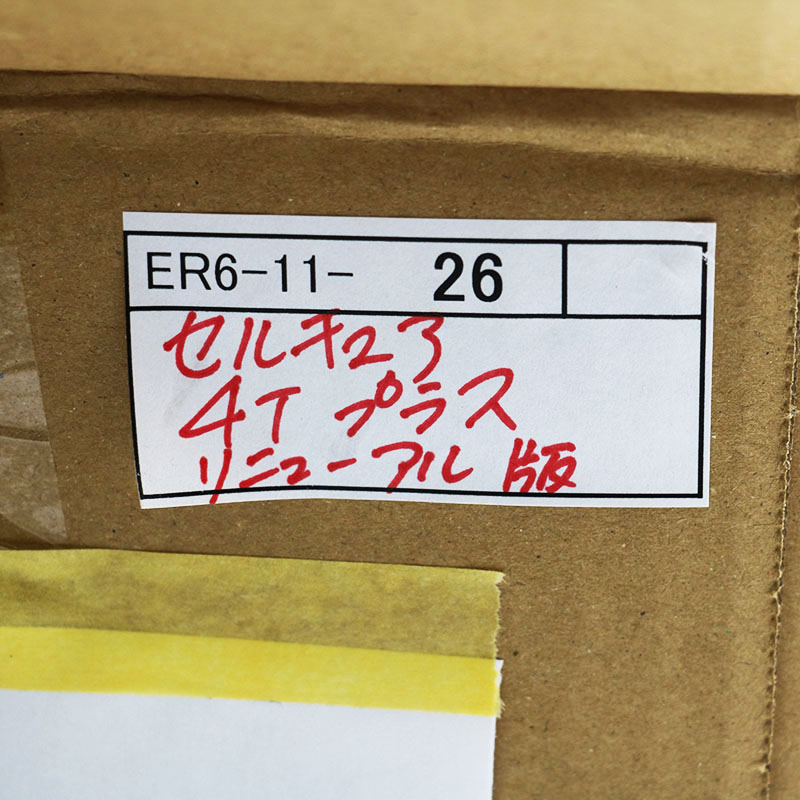 ER6-11- 26
セルキュア
4T プラス
リニューアル 版